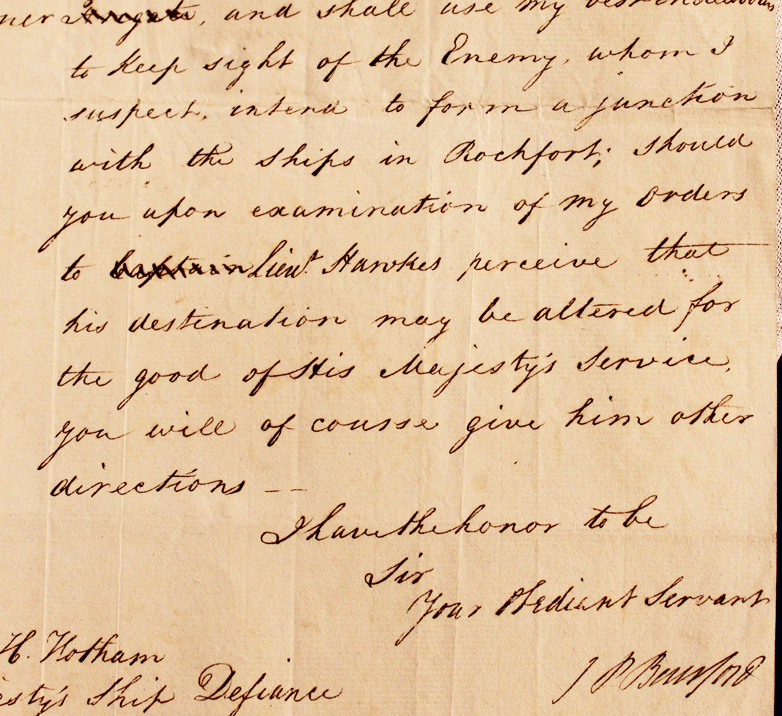 and shall use my best
to keep sight of the Enemy, whom I
suspect, intend to form a junction
with the Ships in Rochfort; should
you upon examination of my orders
to Captain Lieut. Hawkes perceive that
his destination may be altered for
the good of His Majesty's Service,
you will of course give him other
directions —
I have the honor to be
Sir
Your Obedient Servant
H. Hotham
esty's Ship Defiance